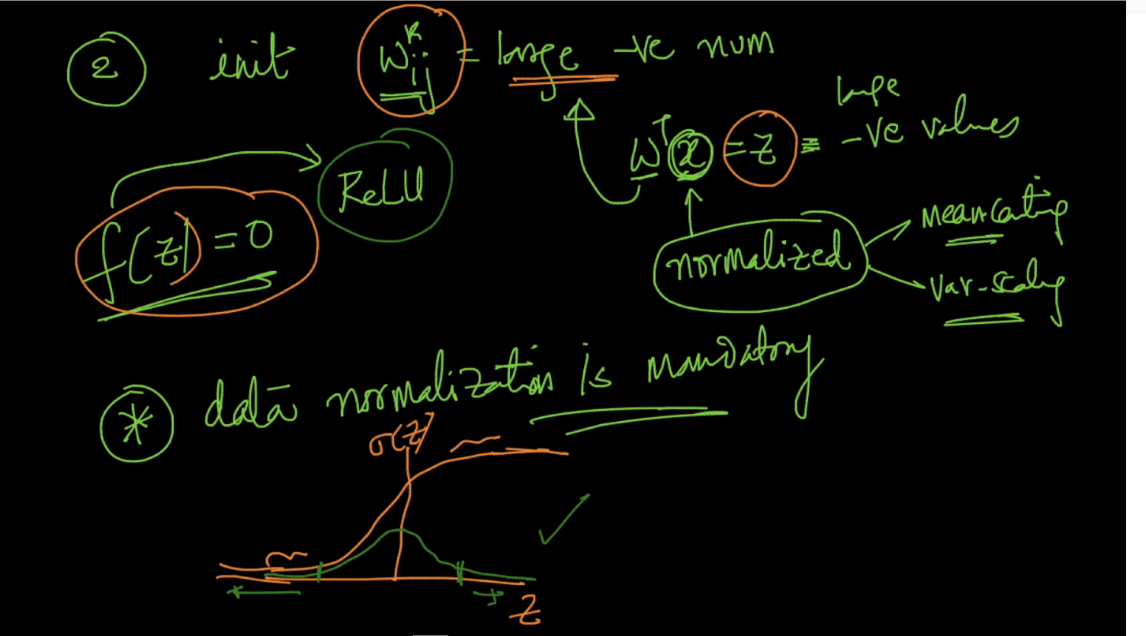 ② init w_ij^k = large -ve num
w^T x = z ≡ large -ve values
ReLU
f(z) = 0
normalized
Mean centring
Var-scaling
* data normalization is mandatory
σ(z)
z